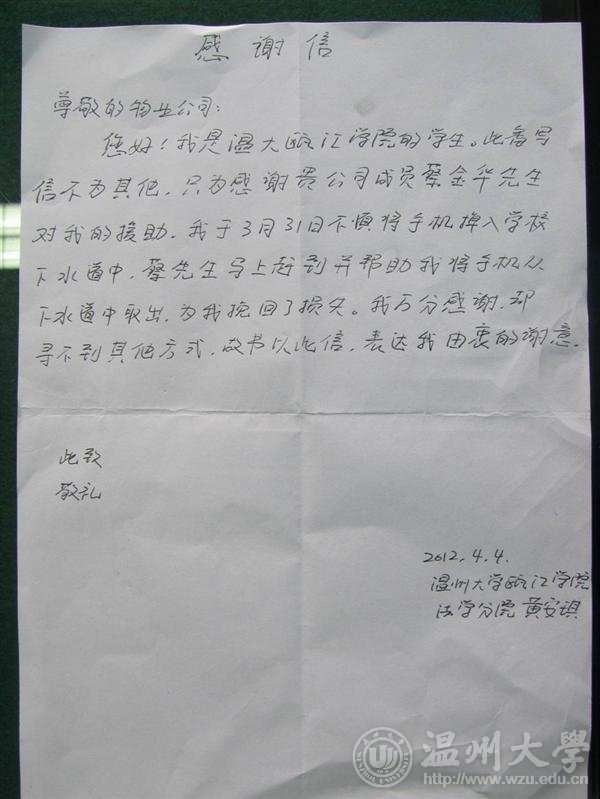 感谢信
尊敬的物业公司:
您好!我是温大瓯江学院的学生。此番写
信不为其他,只为感谢贵公司成员蔡金华先生
对我的援助。我于3月31日不慎将手机掉入学校
下水道中,蔡先生马上赶到并帮助我将手机从
下水道中取出,为我挽回了损失。我万分感谢,却
寻不到其他方式,故书以此信,表达我由衷的谢意.
此致
敬礼
2012.4.4.
温州大学瓯江学院
法学分院 黄安琪
温州大学
WENZHOU UNIVERSITY
http://www.wzu.edu.cn